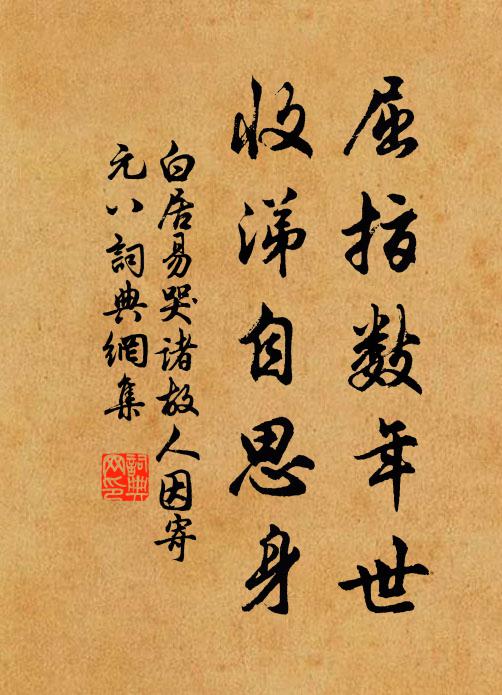 屈指数年世
收涕自思身
白居易哭诸故人因寄
元八詞典網集
詞典
网印